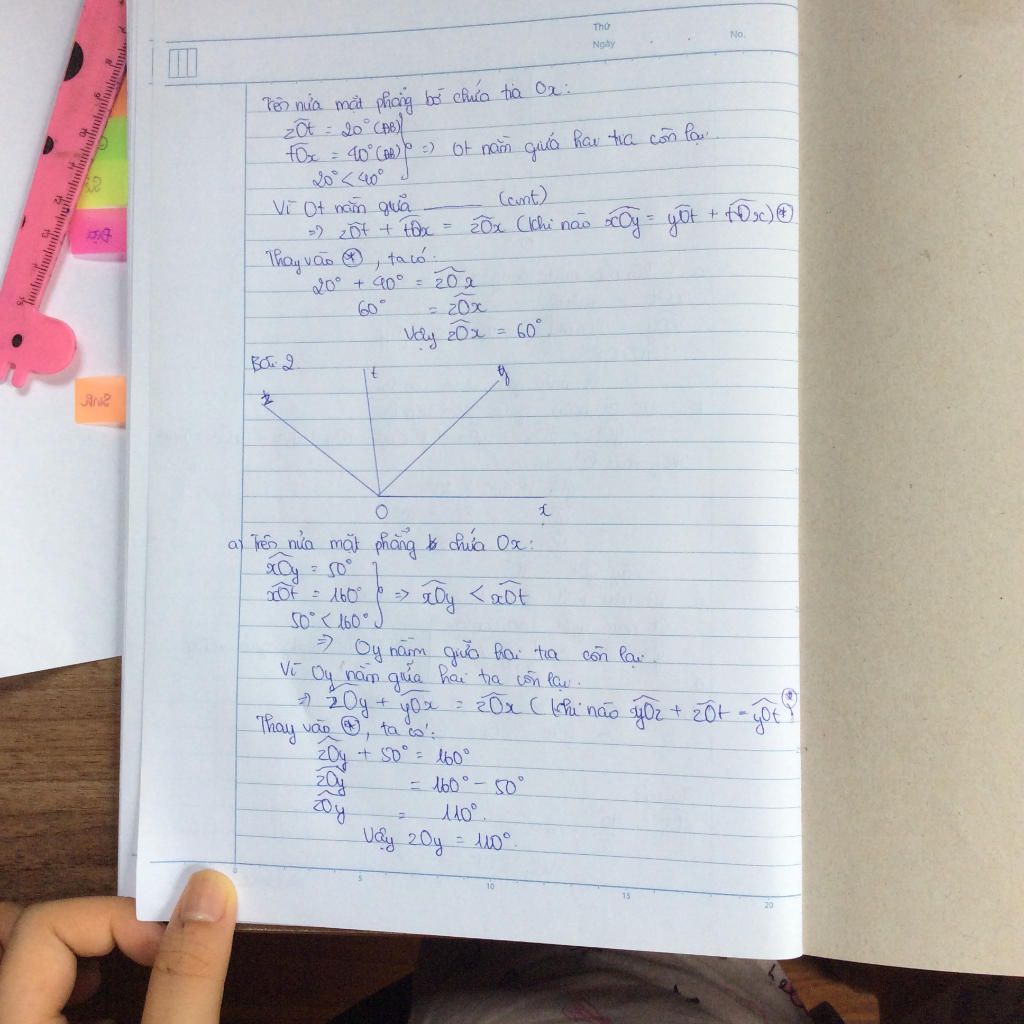 Thứ
Ngày . . No.
Trên nửa mặt phẳng bờ chứa tia Ox:
zOt = 20° (ĐB)
tOx = 40° (ĐB) => Ot nằm giữa hai tia còn lại.
20° < 40°
Vì Ot nằm giữa ______ (cmt)
=> zOt + tOx = zOx (khi nào xOy = yOt + tOx) (*)
Thay vào (*), ta có:
20° + 40° = zOx
60° = zOx
Vậy zOx = 60°
Bài 2
z t y
O x
a) Trên nửa mặt phẳng b chứa Ox:
xOy = 50°
xOt = 160° => xOy < xOt
50° < 160°
=> Oy nằm giữa hai tia còn lại.
Vì Oy nằm giữa hai tia còn lại.
=> zOy + yOx = zOx (khi nào yOz + zOt = yOt) (*)
Thay vào (*), ta có:
zOy + 50° = 160°
zOy = 160° - 50°
zOy = 110°.
Vậy zOy = 110°.
0 5 10 15 20